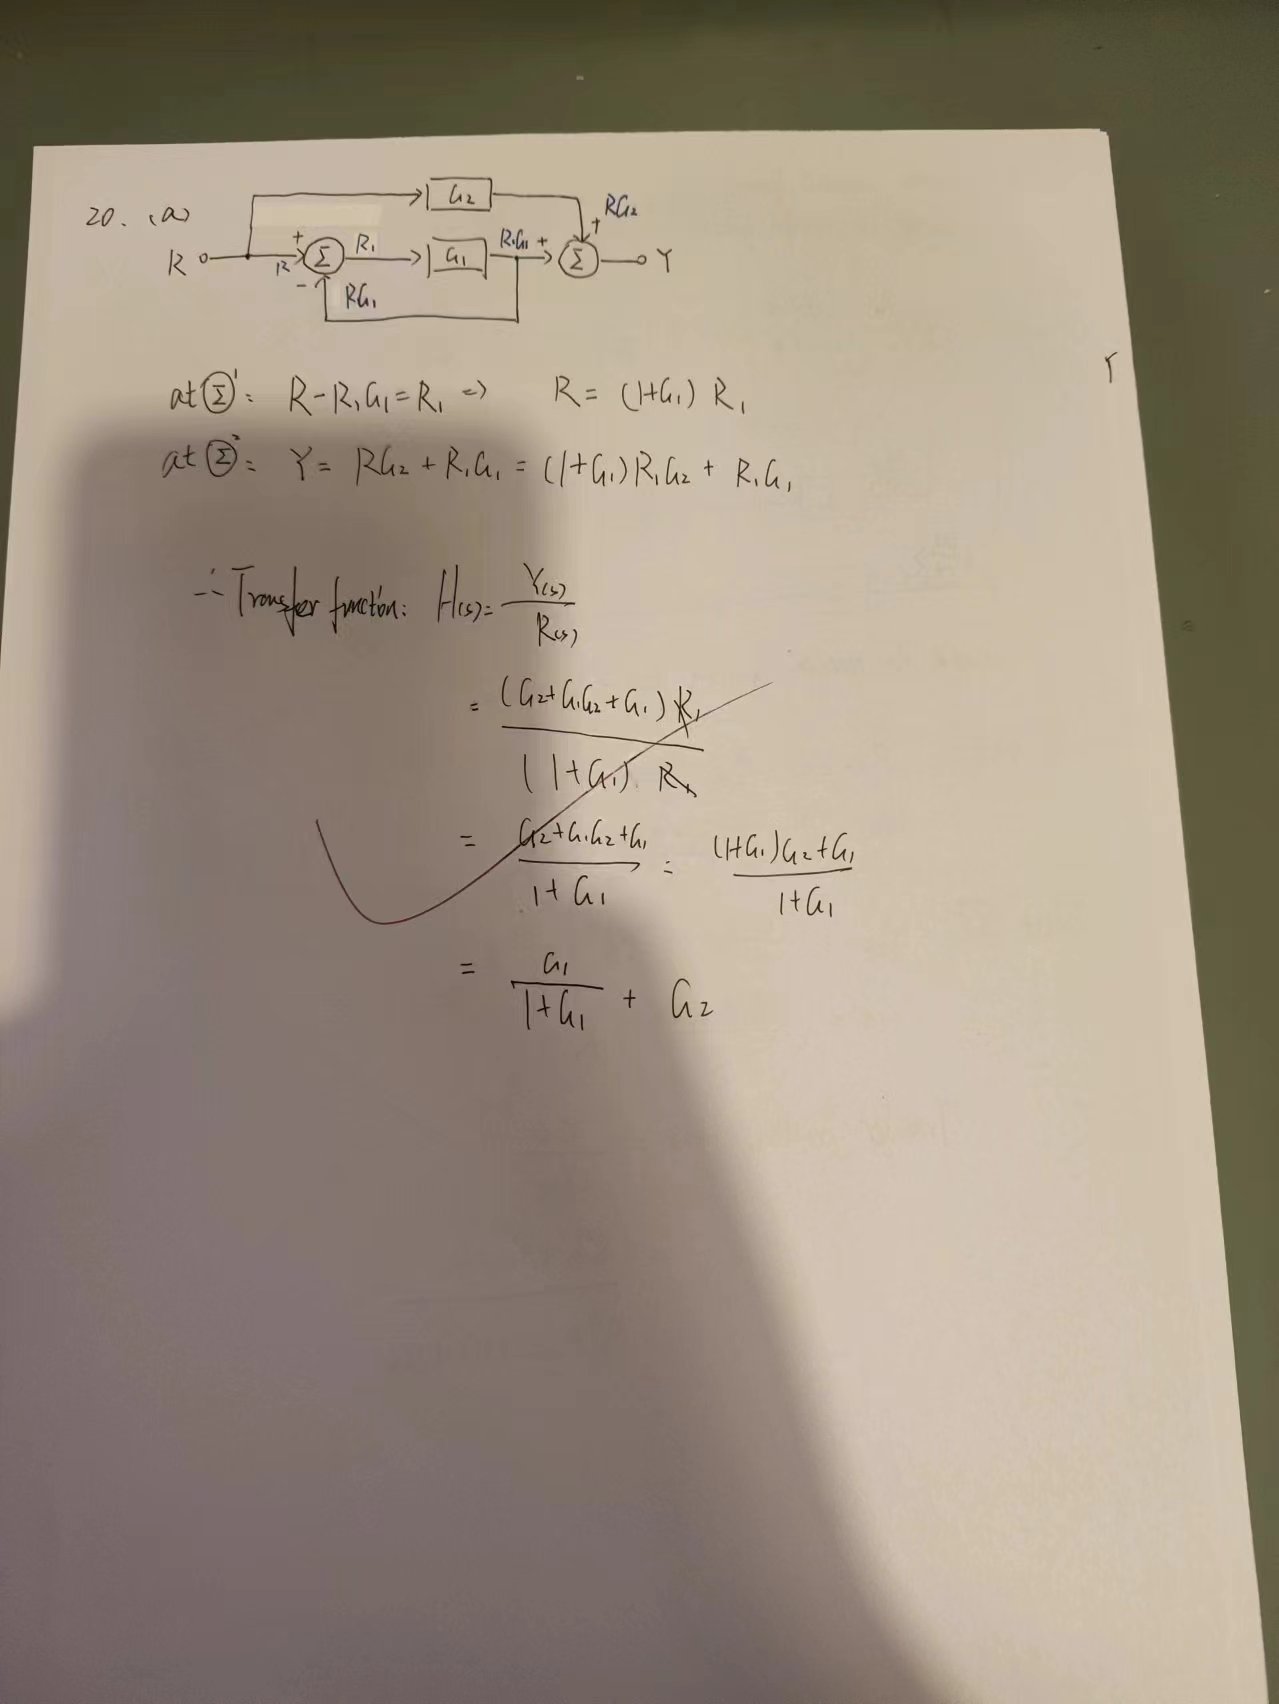 20. (a)
G₂
RG₂
+
R + R Σ R₁ G₁ R₁G₁ + Σ Y
- RG₁
at Σ¹: R-R₁G₁=R₁ => R= (1+G₁) R₁
at Σ²: Y= RG₂ + R₁G₁ = (1+G₁)R₁G₂ + R₁G₁
∴ Transfer function: H(s)= Y(s) / R(s)
= (G₂+G₁G₂+G₁) R₁ / (1+G₁) R₁
= G₂+G₁G₂+G₁ / 1+G₁ = (1+G₁)G₂+G₁ / 1+G₁
= G₁ / 1+G₁ + G₂